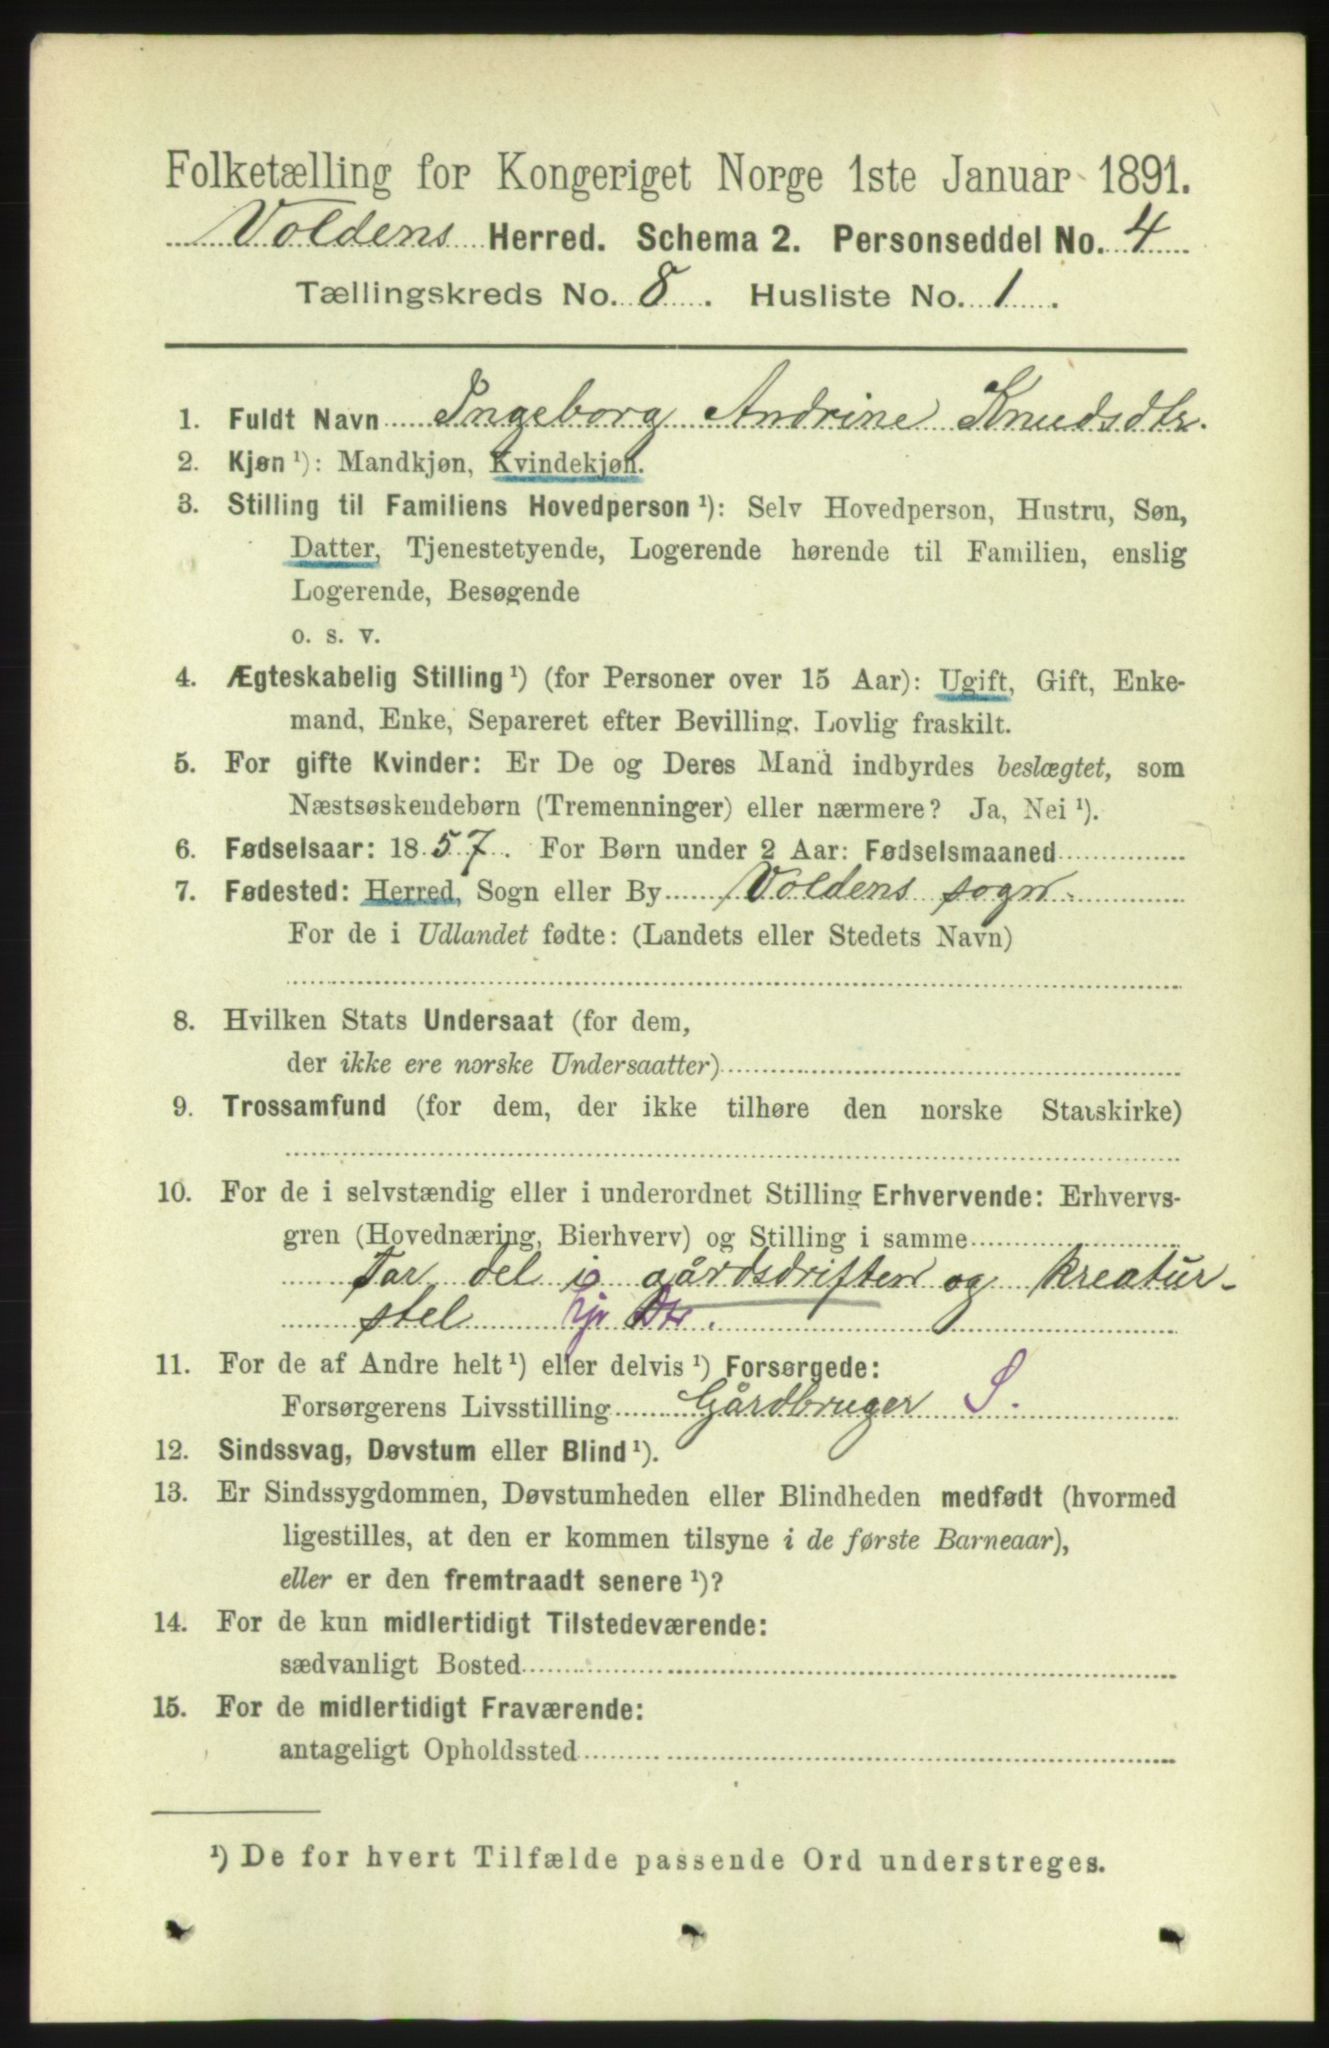 Folketælling for Kongeriget Norge 1ste Januar 1891.
Voldens Herred. Schema 2. Personseddel No. 4
Tællingskreds No. 8. Husliste No. 1.
1. Fuldt Navn Ingeborg Andrine Knudsdtr.
2. Kjøn ¹): Mandkjøn, Kvindekjøn.
3. Stilling til Familiens Hovedperson ¹): Selv Hovedperson, Hustru, Søn,
Datter, Tjenestetyende, Logerende hørende til Familien, enslig
Logerende, Besøgende
o. s. v.
4. Ægteskabelig Stilling ¹) (for Personer over 15 Aar): Ugift, Gift, Enke-
mand, Enke, Separeret efter Bevilling, Lovlig fraskilt.
5. For gifte Kvinder: Er De og Deres Mand indbyrdes beslægtet, som
Næstsøskendebørn (Tremenninger) eller nærmere? Ja, Nei ¹).
6. Fødselsaar: 1857. For Børn under 2 Aar: Fødselsmaaned
7. Fødested: Herred, Sogn eller By Voldens sogn.
For de i Udlandet fødte: (Landets eller Stedets Navn)
8. Hvilken Stats Undersaat (for dem,
der ikke ere norske Undersaatter)
9. Trossamfund (for dem, der ikke tilhøre den norske Statskirke)
10. For de i selvstændig eller i underordnet Stilling Erhvervende: Erhvervs-
gren (Hovednæring, Bierhverv) og Stilling i samme
Tar del i gårdsdriften og kreatur-
stel hjv Dtr.
11. For de af Andre helt ¹) eller delvis ¹) Forsørgede:
Forsørgerens Livsstilling Gårdbruger S.
12. Sindssvag, Døvstum eller Blind ¹).
13. Er Sindssygdommen, Døvstumheden eller Blindheden medfødt (hvormed
ligestilles, at den er kommen tilsyne i de første Barneaar),
eller er den fremtraadt senere ¹)?
14. For de kun midlertidigt Tilstedeværende:
sædvanligt Bosted
15. For de midlertidigt Fraværende:
antageligt Opholdssted
¹) De for hvert Tilfælde passende Ord understreges.